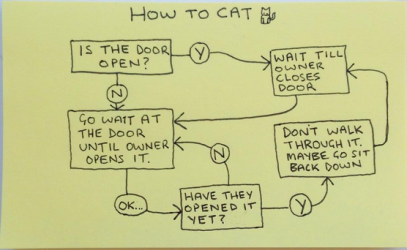 HOW TO CAT
IS THE DOOR
OPEN?
Y
WAIT TILL
OWNER
CLOSES
DOOR
N
GO WAIT AT
THE DOOR
UNTIL OWNER
OPENS IT.
OK...
HAVE THEY
OPENED IT
YET?
N
Y
DON'T WALK
THROUGH IT.
MAYBE GO SIT
BACK DOWN